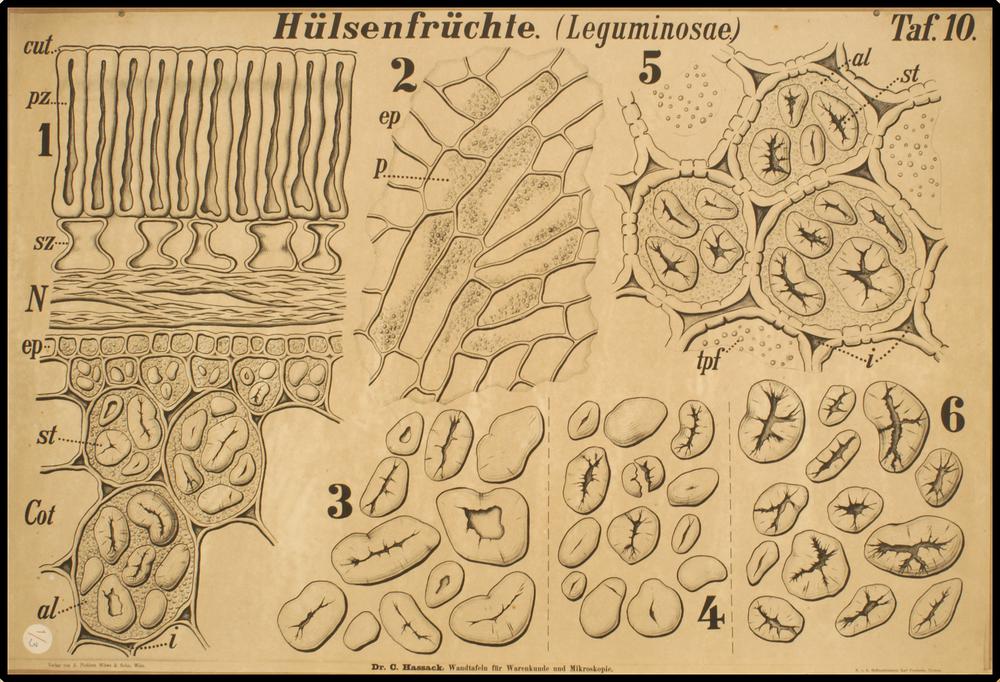 Hülsenfrüchte. (Leguminosae)
Taf. 10.
cut.
pz
1
sz
N
ep
st
Cot
al
i
2
ep
p
5
al
st
tpf
i
3
4
6
1/3
Verlag von A. Pichlers Witwe & Sohn, Wien.
Dr. C. Hassack. Wandtafeln für Warenkunde und Mikroskopie.